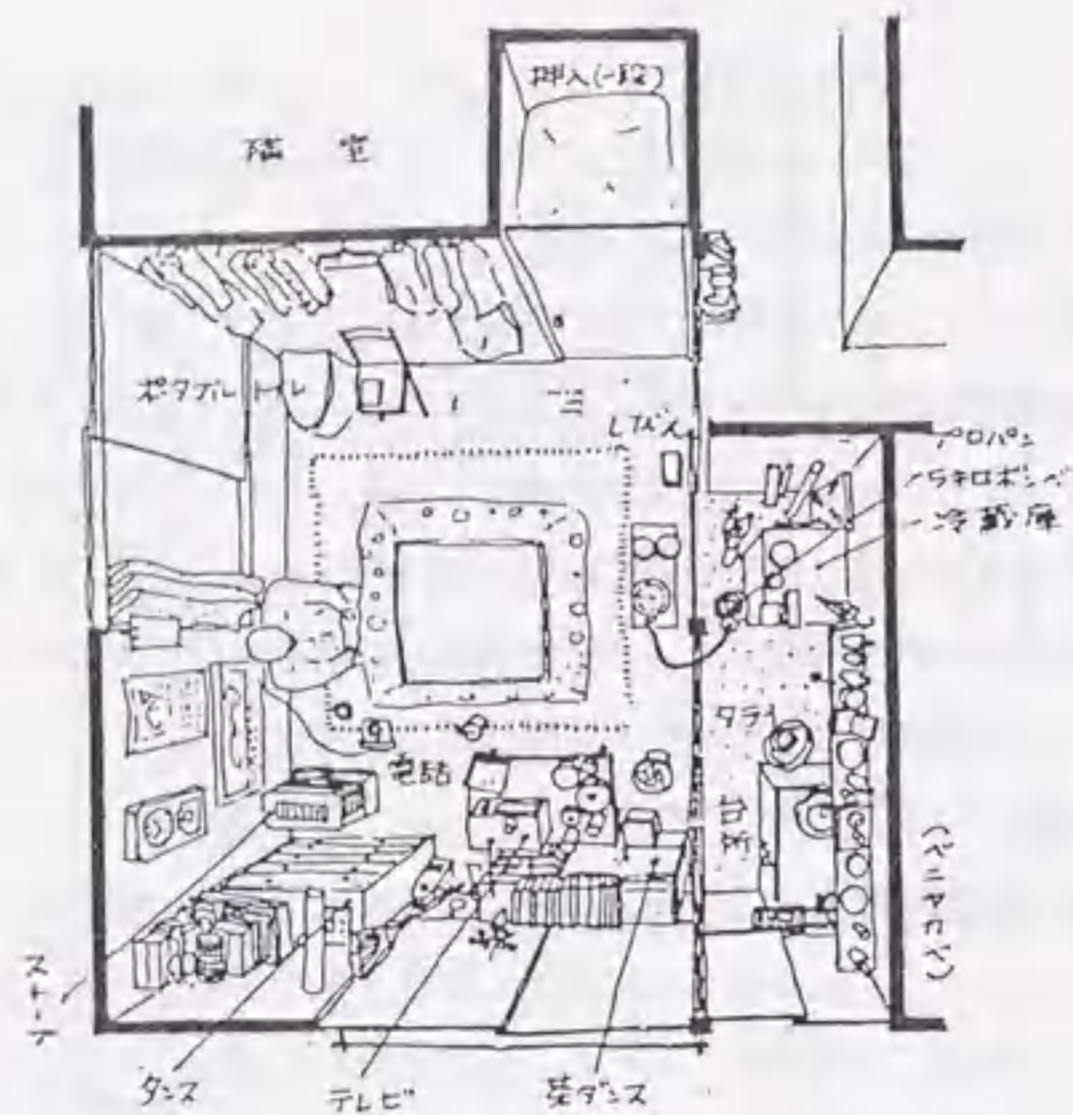 押入(一段)
隣室
ポータブルトイレ
しびん
プロパン
5キロボンベ
冷蔵庫
タライ
電話
台所
(ベニヤカベ)
ストーブ
タンス
テレビ
茶ダンス